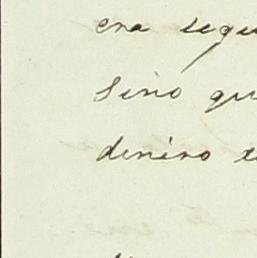 era segu
Sino qu
dinero